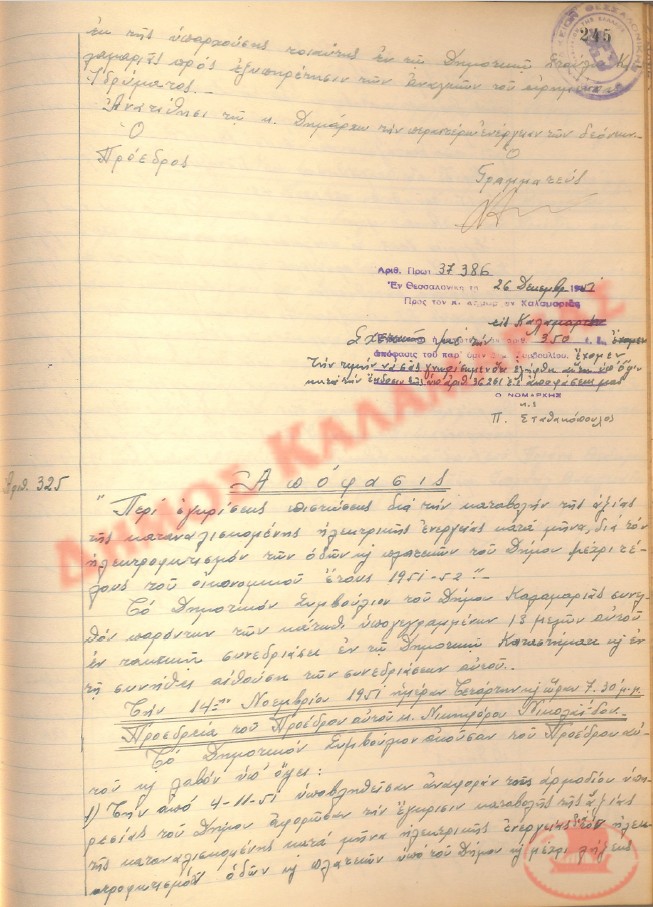 245
ἐκ τῆς ὑπαρχούσης τοιαύτης ἐν τῷ Δημοτικῷ
λαμαριᾶς πρὸς ἐξυπηρέτησιν τῶν ἀναγκῶν τοῦ
Ἱδρύματος.-
Ἀνατίθησι τῷ κ. Δημάρχῳ τὴν περαιτέρω ἐνέργειαν τῶν δεόντων.-
Ὁ
Πρόεδρος
Ὁ
Γραμματεύς
Αριθ. Πρωτ 37386
Ἐν Θεσσαλονίκῃ τῇ 26 Δεκεμβρ 1951
Πρὸς τὸν κ. Δήμαρχον Καλαμαριᾶς
εἰς Καλαμαριάν
350
ἀπόφασις τοῦ παρ' ὑμῖν Συμβουλίου, ἔχομεν
τὴν τιμὴν νὰ σᾶς γνωρίσωμεν ὅτι ἐλήφθη αὕτη ὑπ' ὄψιν
κατὰ τὴν ἔκδοσιν τῆς ὑπ' ἀριθ. 36251 ἐ.ἔ. ἀποφάσεώς μας
Ο ΝΟΜΑΡΧΗΣ
κ.ἐ
Π. Σταθακόπουλος
Ἀριθ. 325
Ἀπόφασις
"Περὶ ἐγκρίσεως πιστώσεως διὰ τὴν καταβολὴν τῆς ἀξίας
τῆς καταναλισκομένης ἠλεκτρικῆς ἐνεργείας κατὰ μῆνα, διὰ τὸν
ἠλεκτροφωτισμὸν τῶν ὁδῶν κ̀ πλατειῶν τοῦ Δήμου μέχρι τέ-
λους τοῦ οἰκονομικοῦ ἔτους 1951-52".-
Τὸ Δημοτικὸν Συμβούλιον τοῦ Δήμου Καλαμαριᾶς συνελ-
θὸν παρόντων τῶν κάτωθι ὑπογεγραμμένων 13 μελῶν αὐτοῦ
ἐν τακτικῇ συνεδριάσει ἐν τῷ Δημοτικῷ Καταστήματι κ̀ ἐν
τῇ συνήθει αἰθούσῃ τῶν συνεδριάσεων αὐτοῦ..
Τὴν 14ην Νοεμβρίου 1951 ἡμέραν Τετάρτην κ̀ ὥραν 7.30 μ.μ.
Προεδρείᾳ τοῦ Προέδρου αὐτοῦ κ. Νικηφόρου Νικολαΐδου.
Τὸ Δημοτικὸν Συμβούλιον ἀκοῦσαν τοῦ Προέδρου αὐ-
τοῦ κ̀ λαβὸν ὑπ' ὄψει:
1) Τὴν ἀπὸ 4-11-51 ὑποβληθεῖσαν ἀναφορὰν τῆς ἁρμοδίου ὑπη-
ρεσίας τοῦ Δήμου ἀφορῶσαν τὴν ἔγκρισιν καταβολῆς τῆς ἀξίας
τῆς καταναλισκομένης κατὰ μῆνα ἠλεκτρικῆς ἐνεργείας τὸν ἠλεκ-
τροφωτισμὸν ὁδῶν κ̀ πλατειῶν ὑπὸ τοῦ Δήμου κ̀ μέχρι λήξεως
ΔΗΜΟΣ ΚΑΛΑΜΑΡΙΑΣ